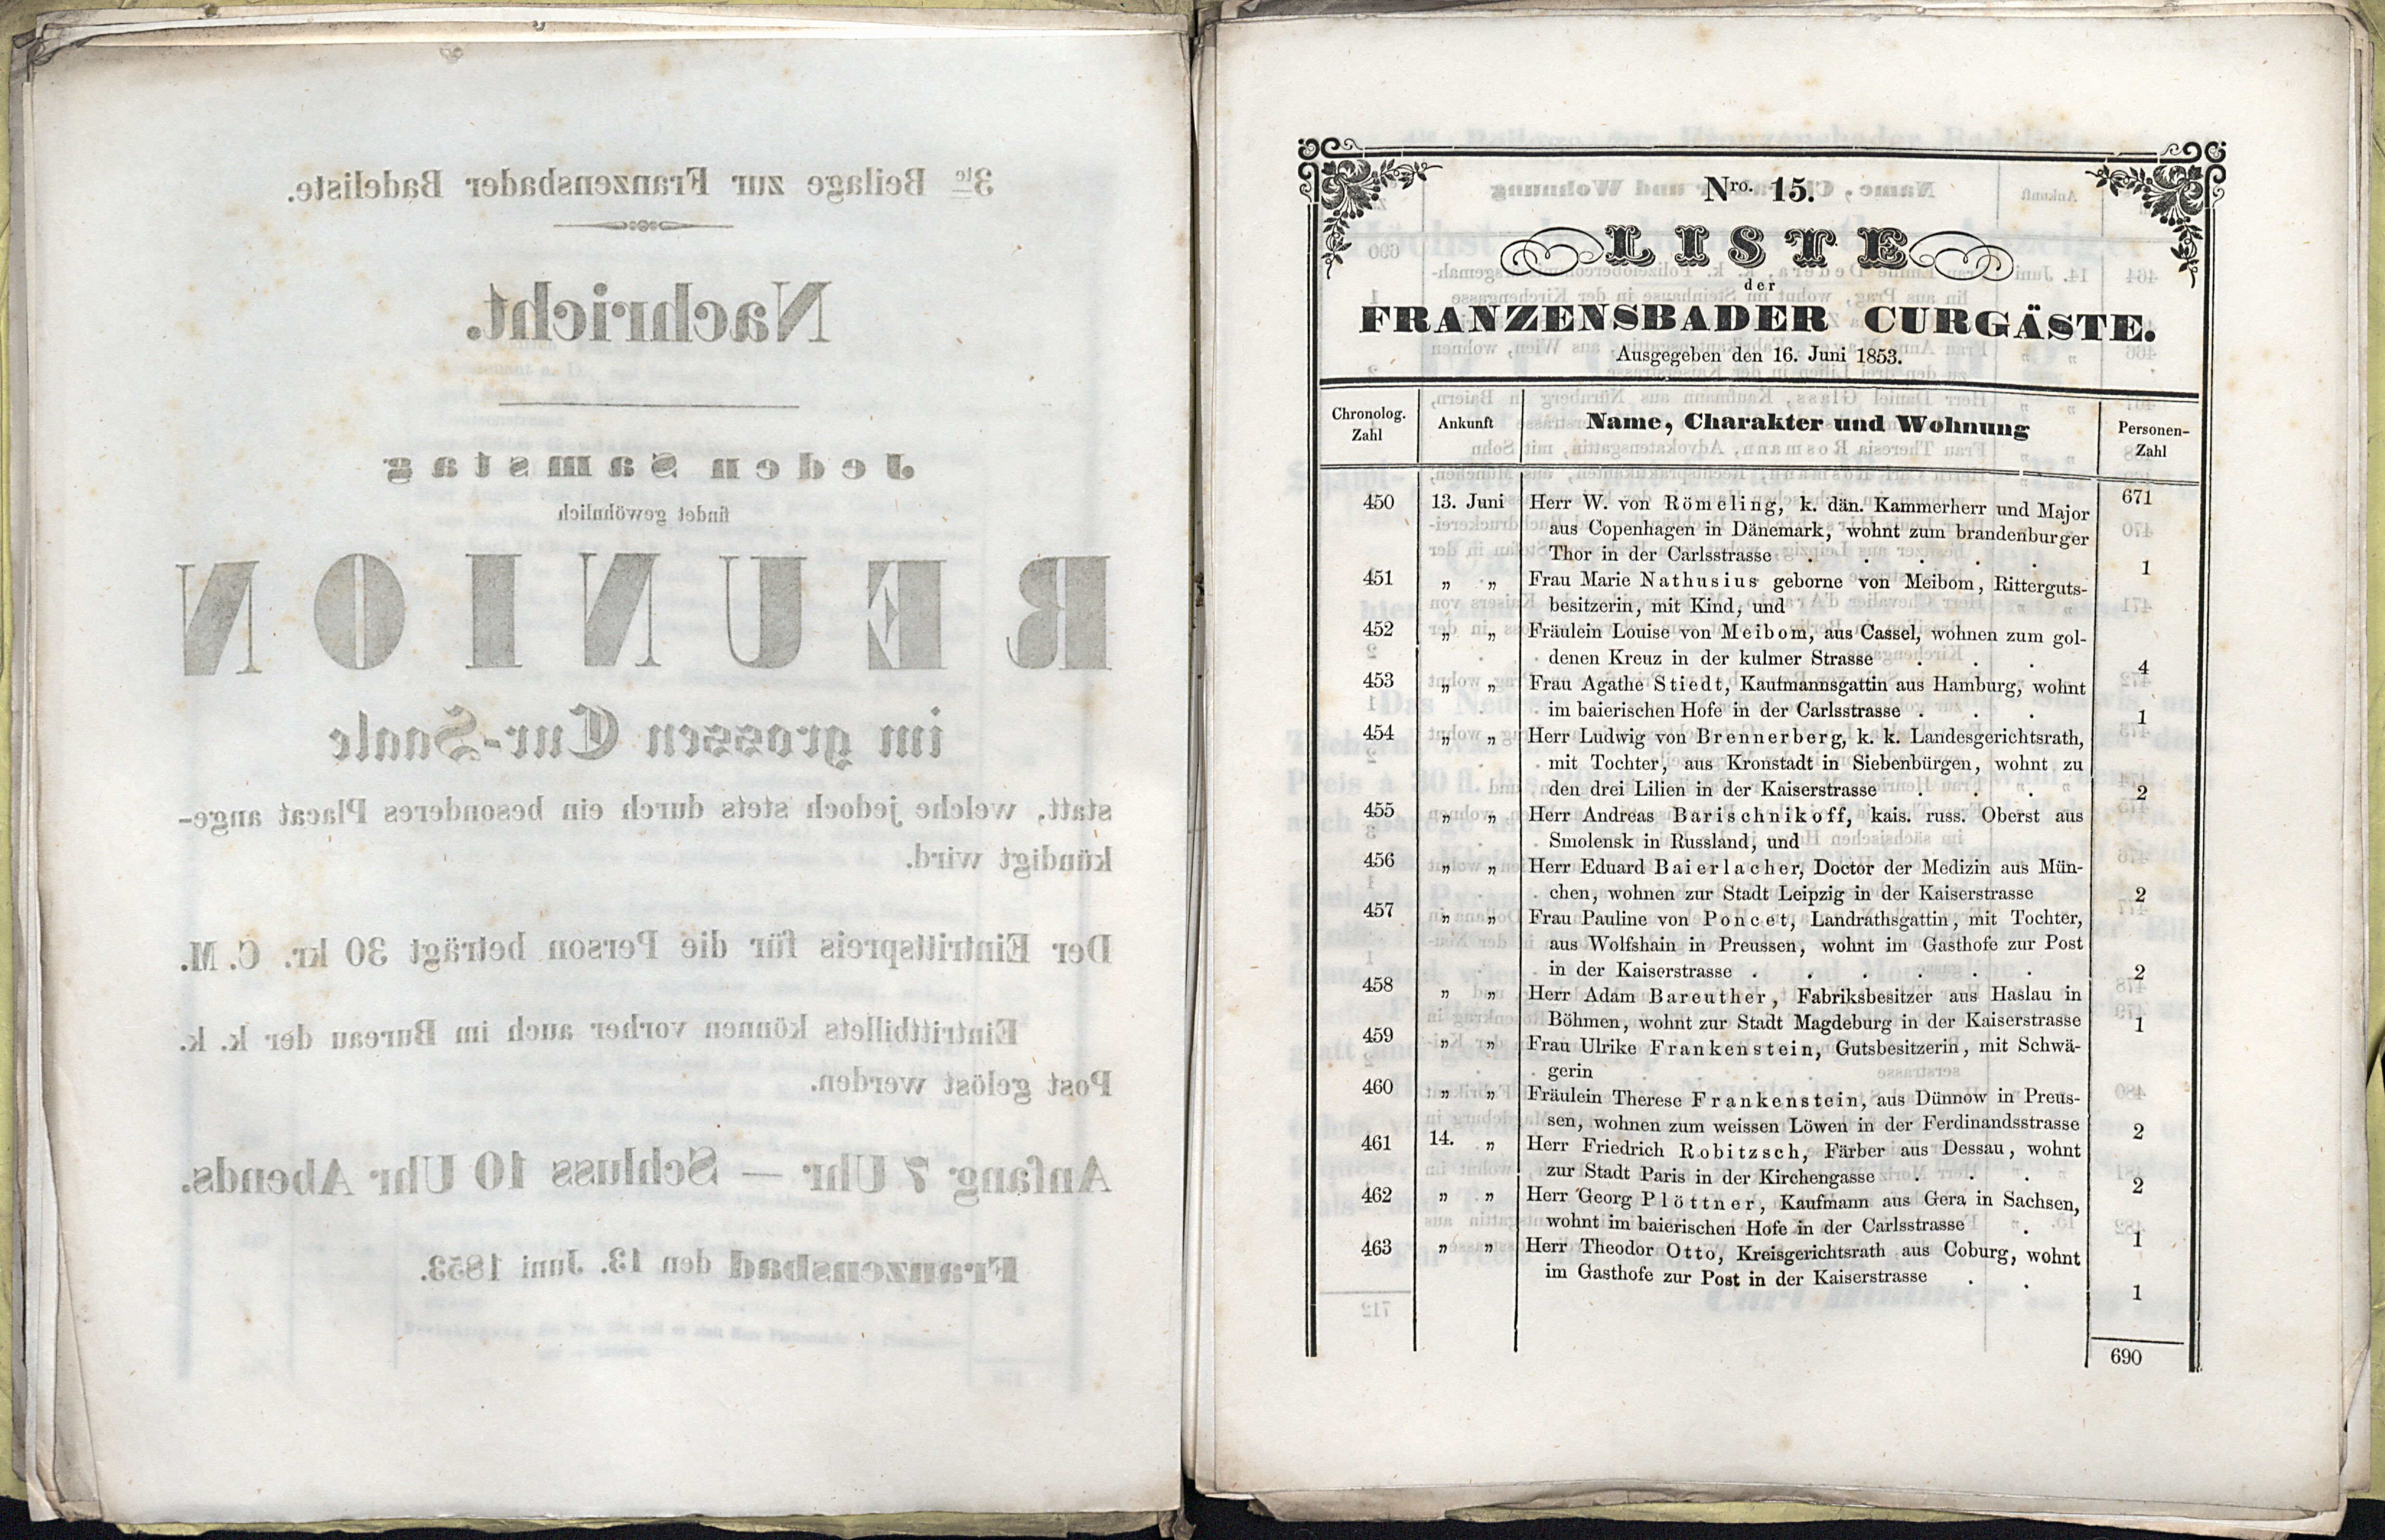 3te Beilage zur Franzensbader Badeliste.
Nachricht.
Jeden Samstag
findet gewöhnlich
REUNION
im grossen Cur-Saale
statt, welche jedoch stets durch ein besonderes Placat ange-
kündigt wird.
Der Eintrittspreis für die Person beträgt 30 kr. C. M.
Eintrittbillets können vorher auch im Bureau der k. k.
Post gelöst werden.
Anfang 7 Uhr — Schluss 10 Uhr Abends.
Franzensbad den 13. Juni 1853.
Nro. 15.
LISTE
der
FRANZENSBADER CURGÄSTE.
Ausgegeben den 16. Juni 1853.
Chronolog. Zahl Ankunft Name, Charakter und Wohnung Personen-Zahl
671
450 13. Juni Herr W. von Römeling, k. dän. Kammerherr und Major
aus Copenhagen in Dänemark, wohnt zum brandenburger
Thor in der Carlsstrasse . . . . . 1
451 „ „ Frau Marie Nathusius geborne von Meibom, Ritterguts-
besitzerin, mit Kind, und
452 „ „ Fräulein Louise von Meibom, aus Cassel, wohnen zum gol-
denen Kreuz in der kulmer Strasse . . . 4
453 „ „ Frau Agathe Stiedt, Kaufmannsgattin aus Hamburg, wohnt
im baierischen Hofe in der Carlsstrasse . . . 1
454 „ „ Herr Ludwig von Brennerberg, k. k. Landesgerichtsrath,
mit Tochter, aus Kronstadt in Siebenbürgen, wohnt zu
den drei Lilien in der Kaiserstrasse . . . 2
455 „ „ Herr Andreas Barischnikoff, kais. russ. Oberst aus
Smolensk in Russland, und
456 „ „ Herr Eduard Baierlacher, Doctor der Medizin aus Mün-
chen, wohnen zur Stadt Leipzig in der Kaiserstrasse 2
457 „ „ Frau Pauline von Poncet, Landrathsgattin, mit Tochter,
aus Wolfshain in Preussen, wohnt im Gasthofe zur Post
in der Kaiserstrasse . . . . . . 2
458 „ „ Herr Adam Bareuther, Fabriksbesitzer aus Haslau in
Böhmen, wohnt zur Stadt Magdeburg in der Kaiserstrasse 1
459 „ „ Frau Ulrike Frankenstein, Gutsbesitzerin, mit Schwä-
gerin
460 „ „ Fräulein Therese Frankenstein, aus Dünnow in Preus-
sen, wohnen zum weissen Löwen in der Ferdinandsstrasse 2
461 14. „ Herr Friedrich Robitzsch, Färber aus Dessau, wohnt
zur Stadt Paris in der Kirchengasse . . . 2
462 „ „ Herr Georg Plöttner, Kaufmann aus Gera in Sachsen,
wohnt im baierischen Hofe in der Carlsstrasse . 1
463 „ „ Herr Theodor Otto, Kreisgerichtsrath aus Coburg, wohnt
im Gasthofe zur Post in der Kaiserstrasse . . 1
690